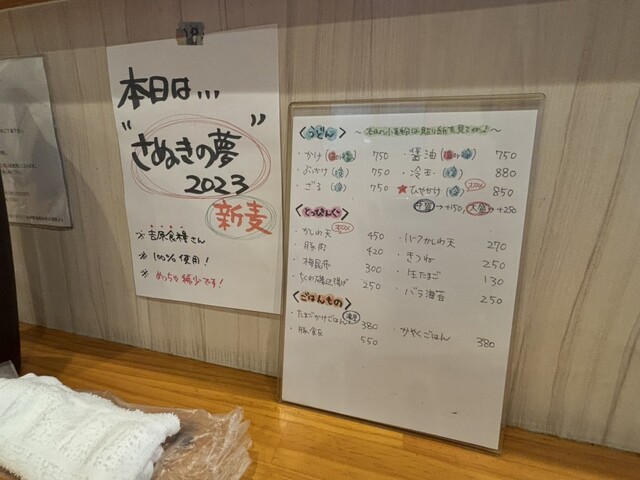 本日は...
"さぬきの夢"
2023
新麦
※ 吉原食糧さん
※ 100%使用!
※ めっちゃ稀少です!
<うどん>
・かけ 750
・ぶっかけ(冷) 750
・ざる(冷) 750
・醤油 750
・冷玉(冷) 880
★ひやかけ(冷) 850
中盛→+150, 大盛→+250
<とっぴんぐ>
・かしわ天 450
・豚肉 420
・梅昆布 300
・ちくわ磯辺揚げ 250
・ハーフかしわ天 270
・きつね 250
・生たまご 130
・バラ海苔 250
<ごはんもの>
・たまごかけごはん 380
・豚飯 550
・かやくごはん 380